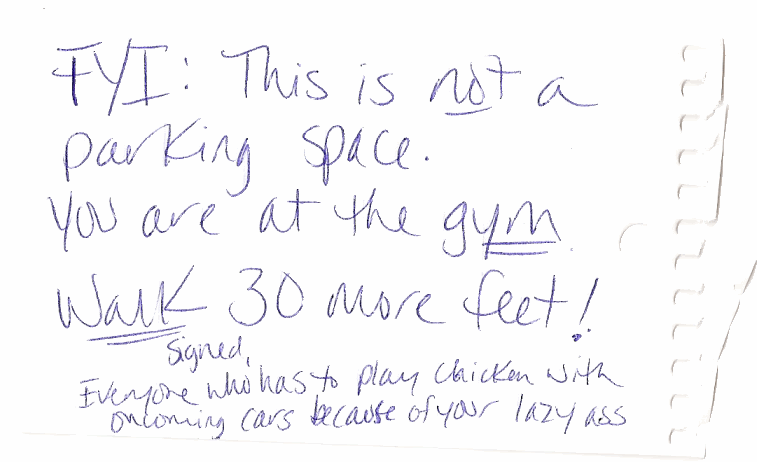 FYI: This is not a
parking space.
You are at the gym.
Walk 30 more feet!
Signed,
Everyone who has to play chicken with
oncoming cars because of your lazy ass